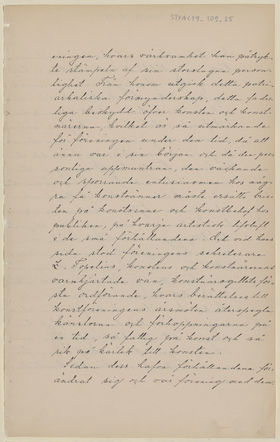 STYA1:19_109_25
eningen, hvars verksamhet han påtryck-
te stämpeln af sin storslagna person-
lighet. Från honom utgick detta patri-
arkaliska förmynderskap, detta fader-
liga beskydd öfver konsten och konst-
närerna, hvilket är så utmärkande
för föreningen under den tid, då allt
ännu var i sin början och då den per-
sonliga uppmuntran, den väckande
och sporrande entusiasmen hos någ-
ra få konstvänner måste ersätta bris-
ten på konstsinne och konstbehof hos
publiken, på hvarje artistisk lifsluft
i de små förhållandena. Och vid hans
sida stod föreningens sekreterare
Z. Topelius, konstens och konstnärernas
varmhjärtade vän, konstnärsgillets för-
ste ordförande, hvars berättelser till
konstföreningens årsmöten återspegla
känslorna och förhoppningarna från
en tid, så fattig på konst och så
rik på kärlek till konsten.
Sedan dess hafva förhållandena för-
ändrat sig och vår förening med dem.